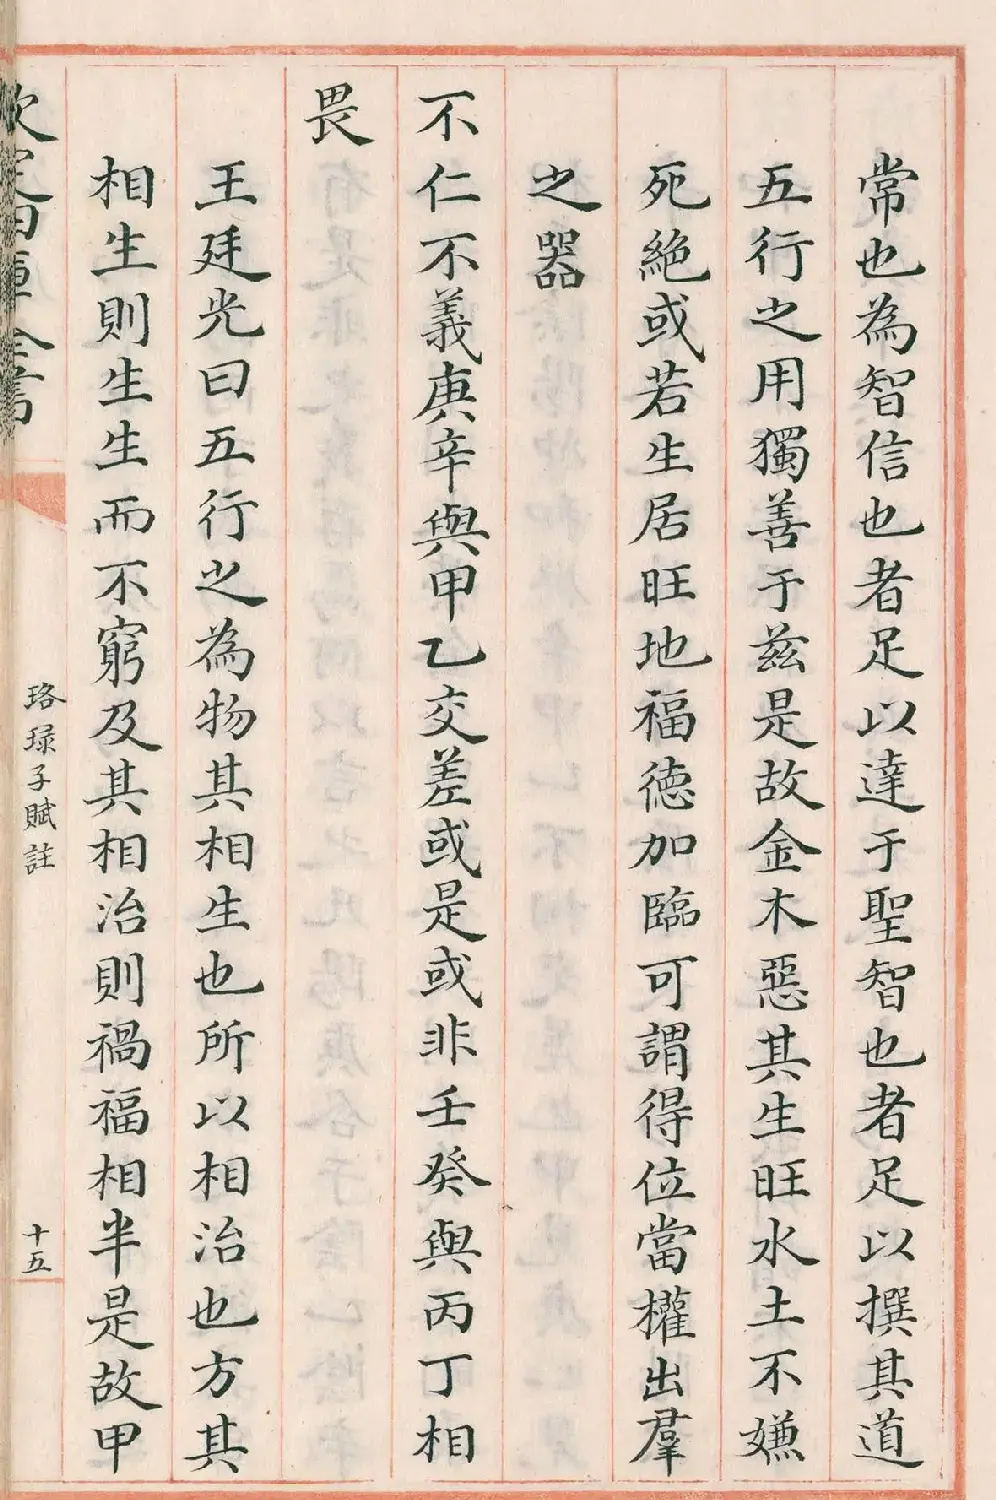 常也為智信也者足以達于聖智也者足以撰其道
五行之用獨善于兹是故金木惡其生旺水土不嫌
死絶或若生居旺地福德加臨可謂得位當權出羣
之器
不仁不義庚辛與甲乙交差或是或非壬癸與丙丁相
畏
王廷光曰五行之為物其相生也所以相治也方其
相生則生生而不窮及其相治則禍福相半是故甲
欽定四庫全書
珞琭子賦註
十五